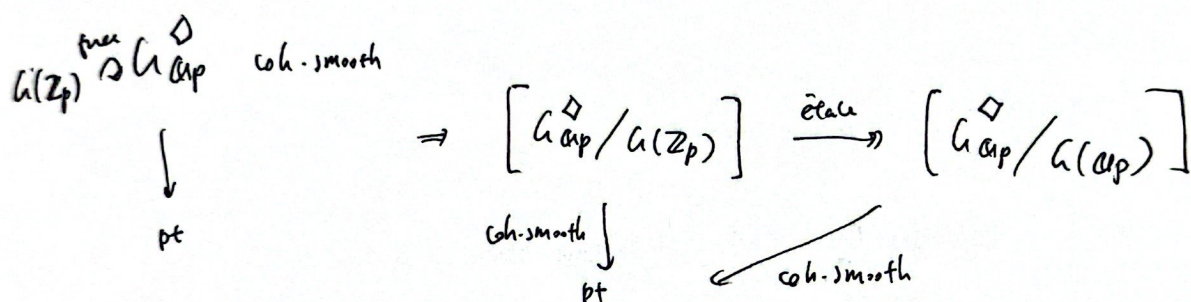 free
G(Z_p) ↷ G^◇_{Q_p} coh-smooth
↓
pt
⇒ [G^◇_{Q_p} / G(Z_p)] —étale→→ [G^◇_{Q_p} / G(Q_p)]
coh-smooth ↓ ↙ coh-smooth
pt